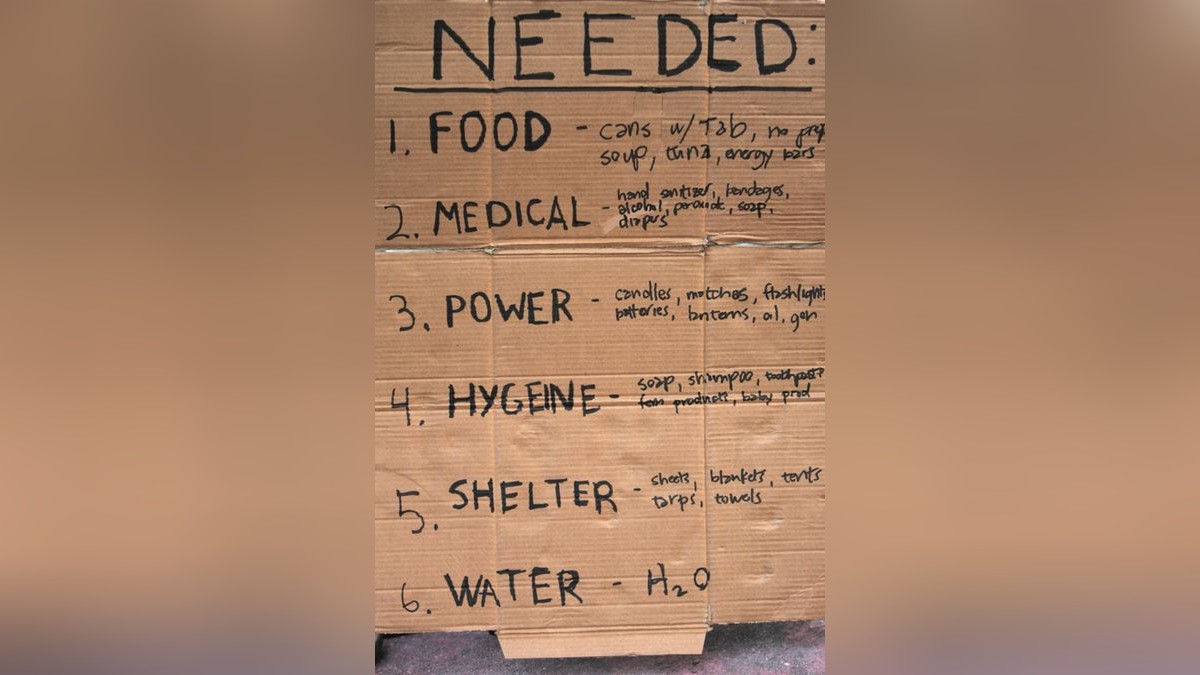 NEEDED:
1. FOOD - cans w/ Tab, no prep
soup, tuna, energy bars
2. MEDICAL - hand sanitizer, bandages,
alcohol, peroxide, soap,
diapers
3. POWER - candles, matches, flashlights
batteries, lanterns, oil, gen
4. HYGEINE - soap, shampoo, toothpaste
fem products, baby prod
5. SHELTER - sheets, blankets, tents
tarps, towels
6. WATER - H₂O